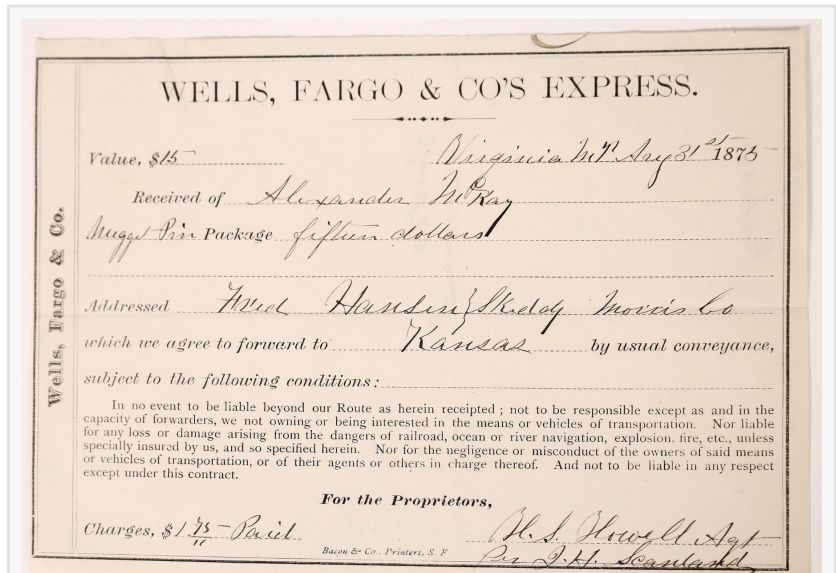 WELLS, FARGO & CO'S EXPRESS.
Value, $15 Virginia Mt Aug 31st 1875
Received of Alexander McKay
Nugget Pin Package fifteen dollars
Addressed Fred Hansen } Skiddy Morris Co
which we agree to forward to Kansas by usual conveyance,
subject to the following conditions:
In no event to be liable beyond our Route as herein receipted; not to be responsible except as and in the
capacity of forwarders, we not owning or being interested in the means or vehicles of transportation. Nor liable
for any loss or damage arising from the dangers of railroad, ocean or river navigation, explosion. fire, etc., unless
specially insured by us, and so specified herein. Nor for the negligence or misconduct of the owners of said means
or vehicles of transportation, or of their agents or others in charge thereof. And not to be liable in any respect
except under this contract.
For the Proprietors,
Charges, $1 75 Paid H. S. Howell Agt
Bacon & Co., Printers, S. F Per J. H. Scanland
Wells, Fargo & Co.